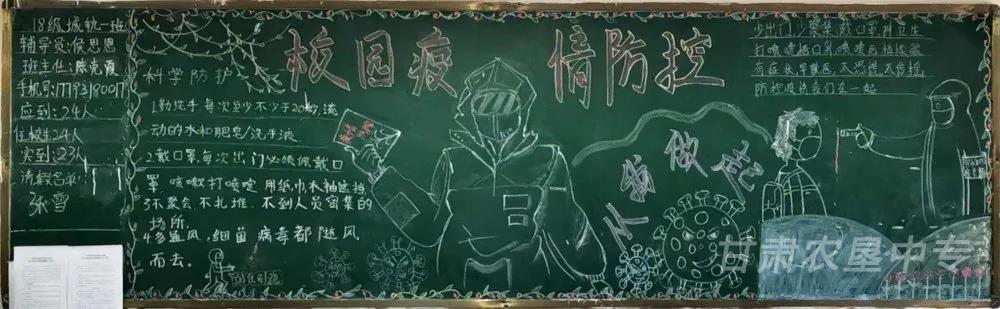 18级城轨一班
辅导员:侯思恩
班主任:陈克霞
手机号:17793180017
应到:24人
在校生24人
实到:23人
请假名单
张雪
校园疫情防控
科学防护
1.勤洗手每次至少不少于20秒,流
动的水和肥皂/洗手液
2.戴口罩每次出门必须佩戴口
罩 咳嗽打喷嚏 用纸巾衣袖遮挡
3不聚会 不扎堆,不到人员密集的
场所
4多通风,细菌 病毒都随风
而去。
从我做起
少出门少聚集 戴口罩讲卫生
有症状,早就医,不恐慌,不信谣,
防控疫情我们在一起
甘肃农垦中专